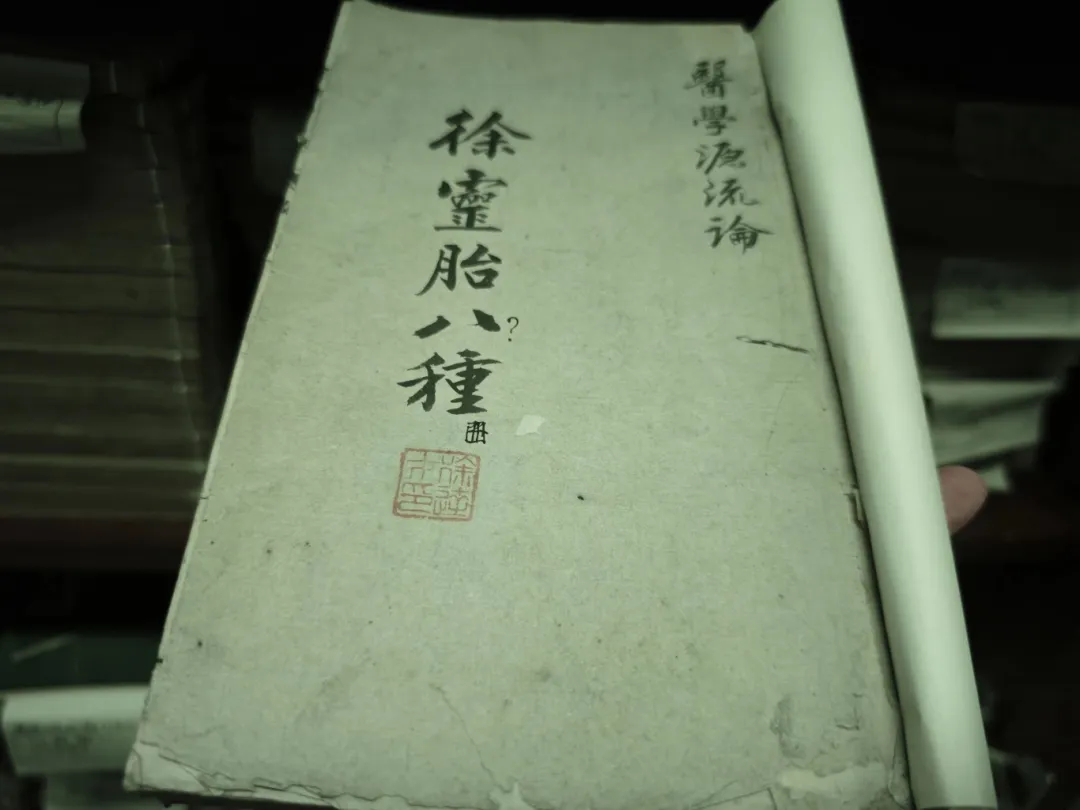 醫學源流論
徐靈胎八種
?
冊